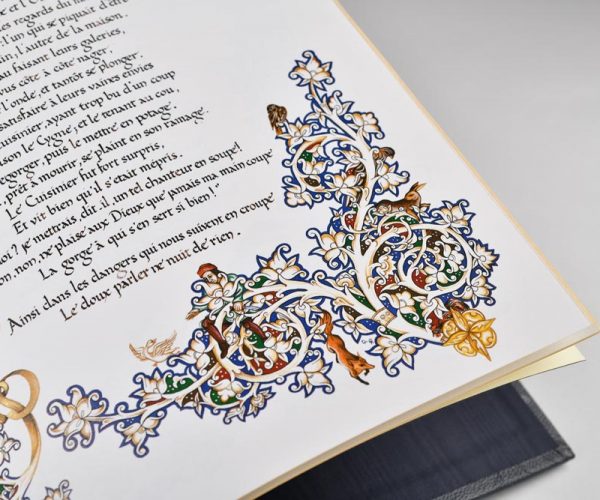 e et l'O
es regards du
-l'un qui se piquait d'être
in, l'autre de la maison.
au faisant leurs galeries,
ous côte à côte nager,
l'onde, et tantôt se plonger,
satisfaire à leurs vaines envies
uisinier, ayant trop bu d'un coup
ison le Cygne; et le tenant au cou,
egorger, puis le mettre en potage.
, prêt à mourir, se plaint en son ramage.
Le Cuisinier fut fort surpris,
Et vit bien qu'il s'était mépris.
oi! je mettrais, dit-il, un tel chanteur en soupe!
on, non, ne plaise aux Dieux que jamais ma main coupe
La gorge à qui s'en sert si bien!"
Ainsi dans les dangers qui nous suivent en croupe
Le doux parler ne nuit de rien.